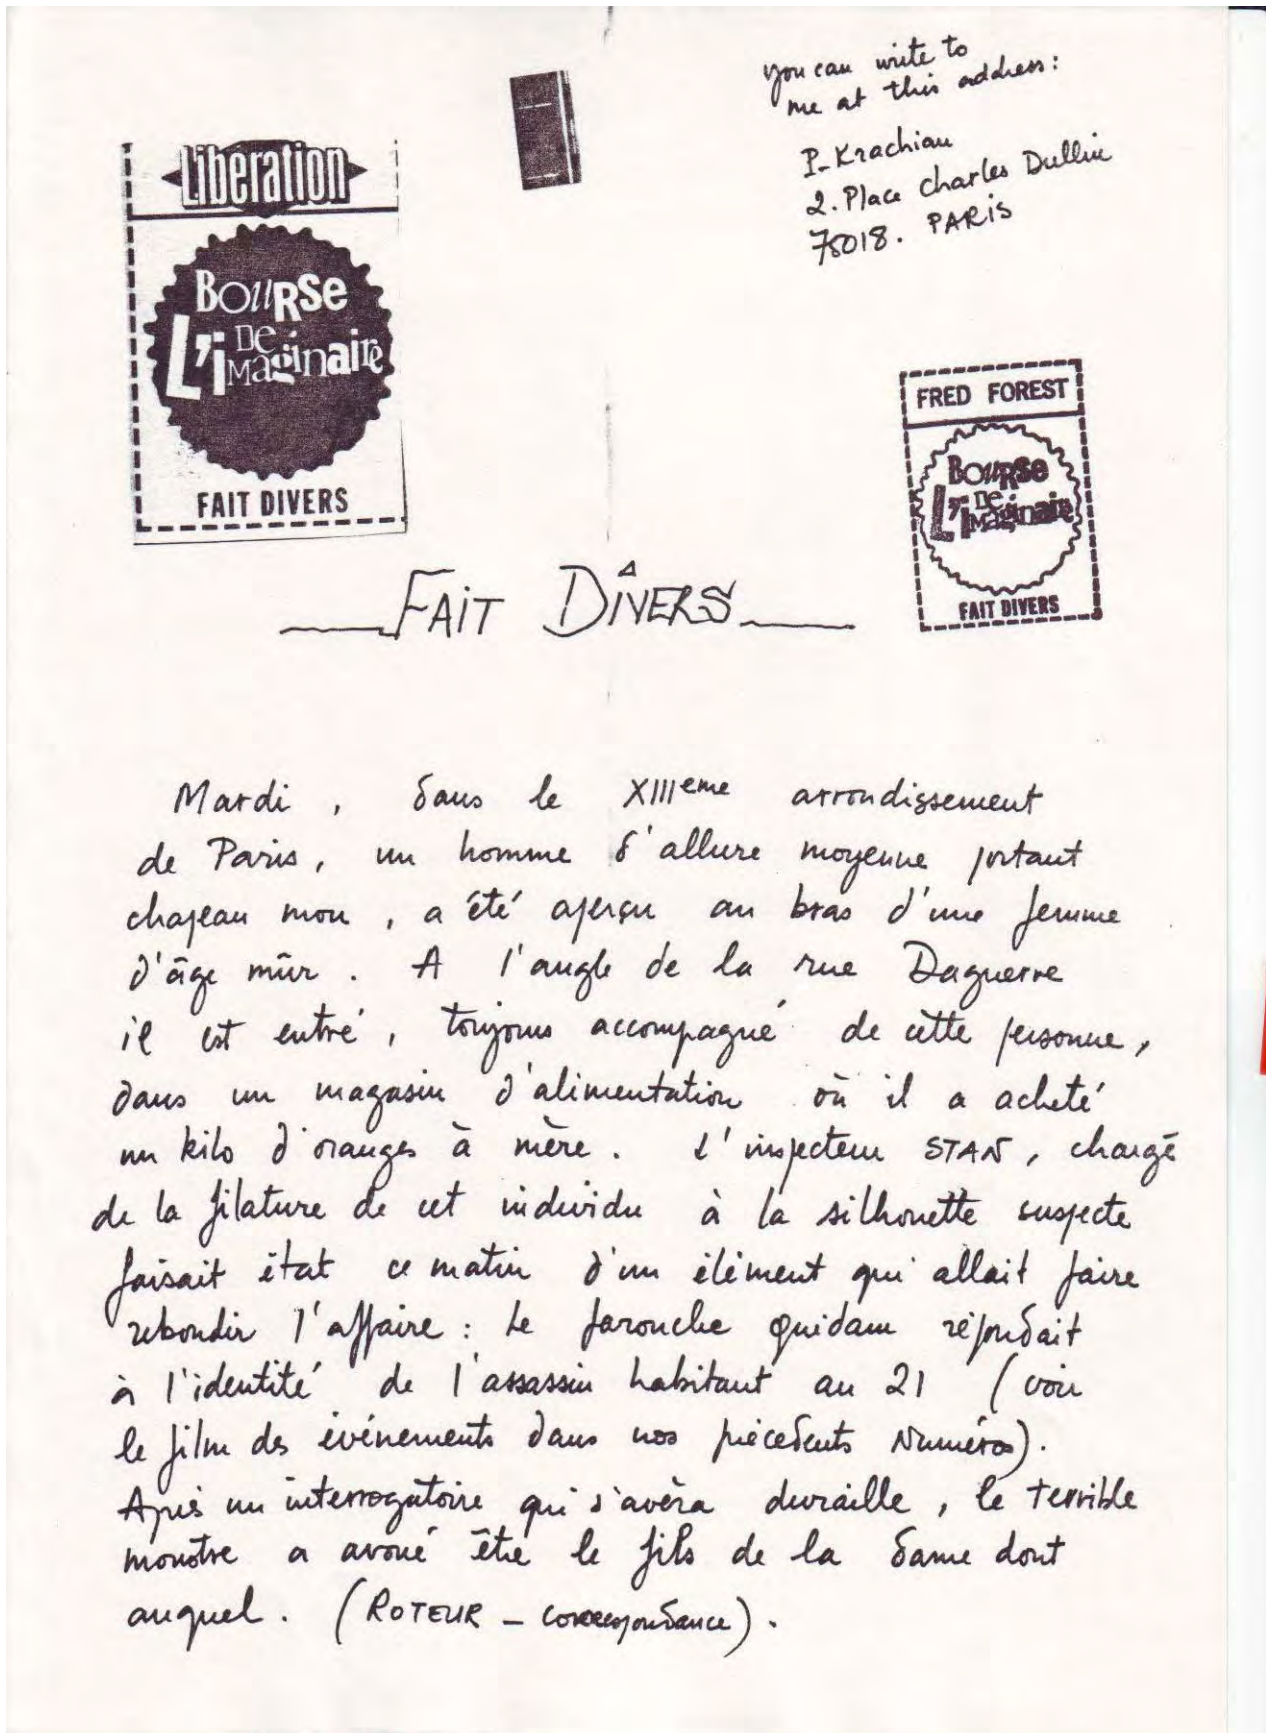 you can write to
me at this address:
P. Krachian
2. Place Charles Dullin
75018. PARIS
Libération
BOURSE
DE
L'iMaginaire
FAIT DIVERS
FRED FOREST
BOURSE
DE
L'iMaginaire
FAIT DIVERS
FAIT DÎVERS
Mardi, dans le XIIIeme arrondissement
de Paris, un homme d'allure moyenne portant
chapeau mou, a été aperçu au bras d'une femme
d'âge mûr. A l'angle de la rue Daguerre
il est entré, toujours accompagné de cette personne,
dans un magasin d'alimentation où il a acheté
un kilo d'oranges à mère. L'inspecteur STAN, chargé
de la filature de cet individu à la silhouette suspecte
faisait état ce matin d'un élément qui allait faire
rebondir l'affaire : Le farouche quidam répondait
à l'identité de l'assassin habitant au 21 (voir
le film des événements dans nos précédents Numéros).
Après un interrogatoire qui s'avèra duraille, le terrible
monstre a avoué être le fils de la dame dont
auquel. (ROTEUR - correspondance).